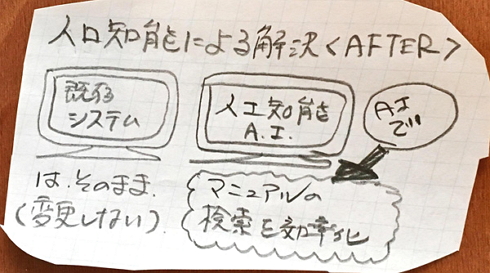 人口知能による解決<AFTER>
既存
システム
人工知能
A.I.
A.Iで
は.そのまま.
(変更しない).
マニュアルの
検索を効率化